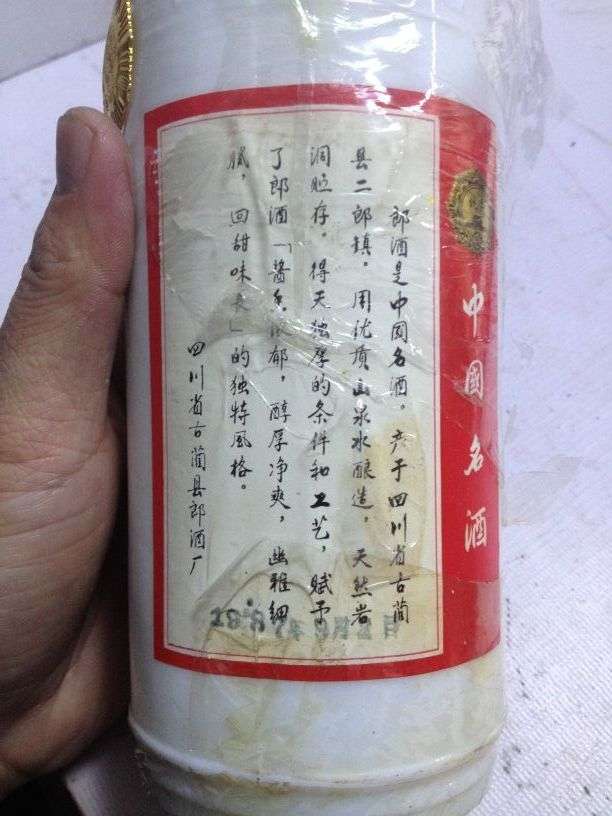 郎酒是中国名酒。产于四川省古蔺
县二郎镇。用优质山泉水酿造，天然岩
洞贮存。得天独厚的条件和工艺，赋予
了郎酒「酱香浓郁，醇厚净爽，幽雅细
腻，回甜味长」的独特风格。
四川省古蔺县郎酒厂
中國名酒